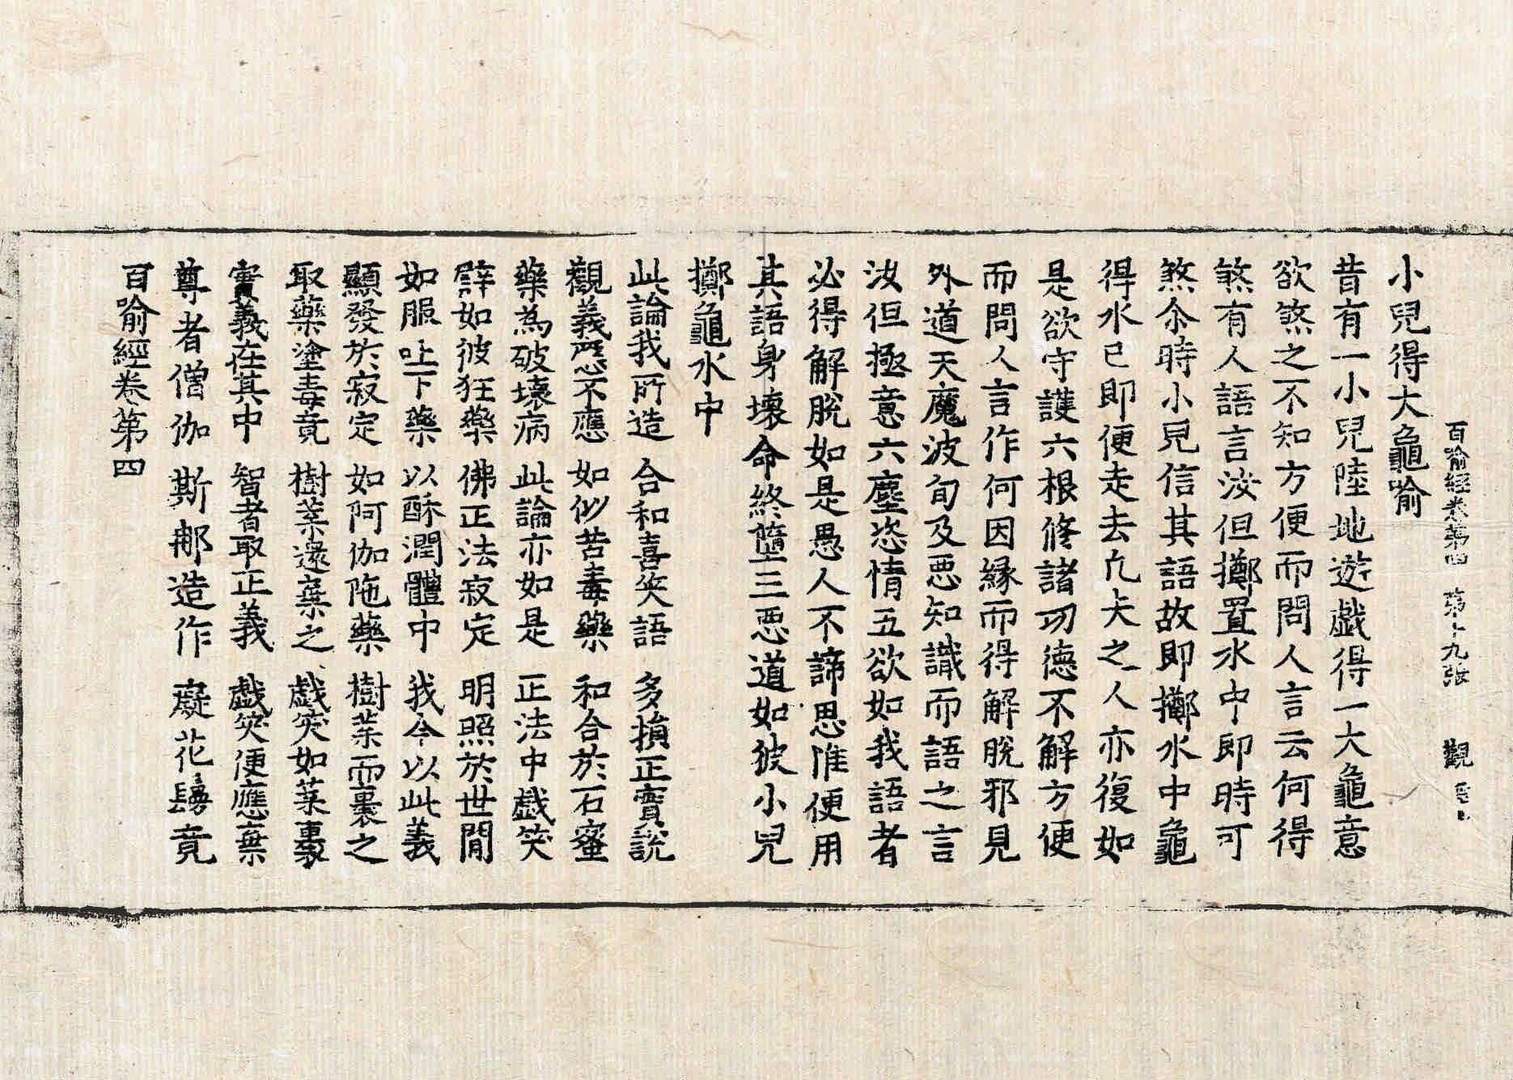 百喻經卷第四 第十九張 觀
小兒得大龜喻
昔有一小兒陸地遊戲得一大龜意
欲煞之不知方便而問人言云何得
煞有人語言汝但擲置水中即時可
煞尒時小兒信其語故即擲水中龜
得水已即便走去凢夫之人亦復如
是欲守護六根修諸功德不解方便
而問人言作何因緣而得解脫邪見
外道天魔波旬及惡知識而語之言
汝但極意六塵恣情五欲如我語者
必得解脫如是愚人不諦思惟便用
其語身壞命終墮三惡道如彼小兒
擲龜水中
此論我所造 合和喜笑語 多損正實說
觀義應不應 如似苦毒藥 和合於石蜜
藥為破壞病 此論亦如是 正法中戲笑
譬如彼狂藥 佛正法寂定 明照於世間
如服吐下藥 以酥潤體中 我今以此義
顯發於寂定 如阿伽陁藥 樹葉而裹之
取藥塗毒竟 樹葉還棄之 戲笑如葉裹
實義在其中 智者取正義 戲笑便應棄
尊者僧伽斯郍造作癡花鬘竟
百喻經卷第四